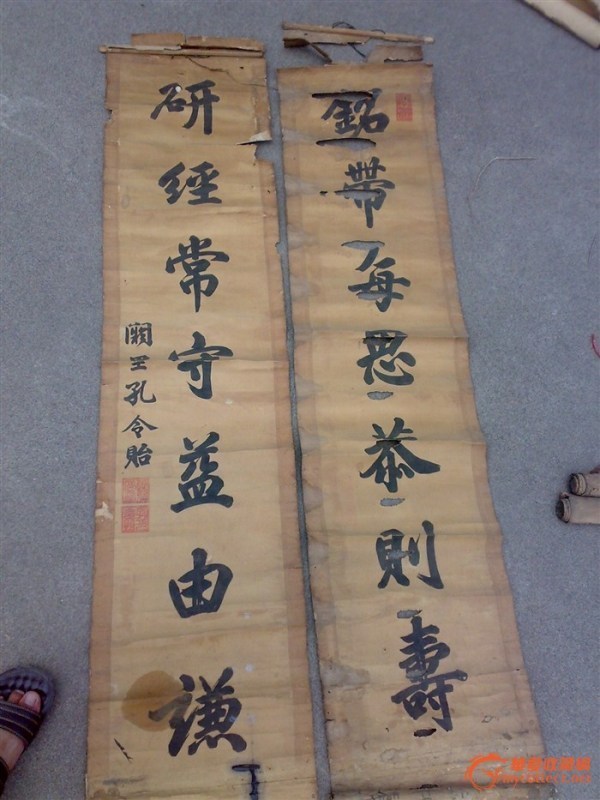 銘帶每思恭則壽
研經常守益由謙
闕里孔令貽